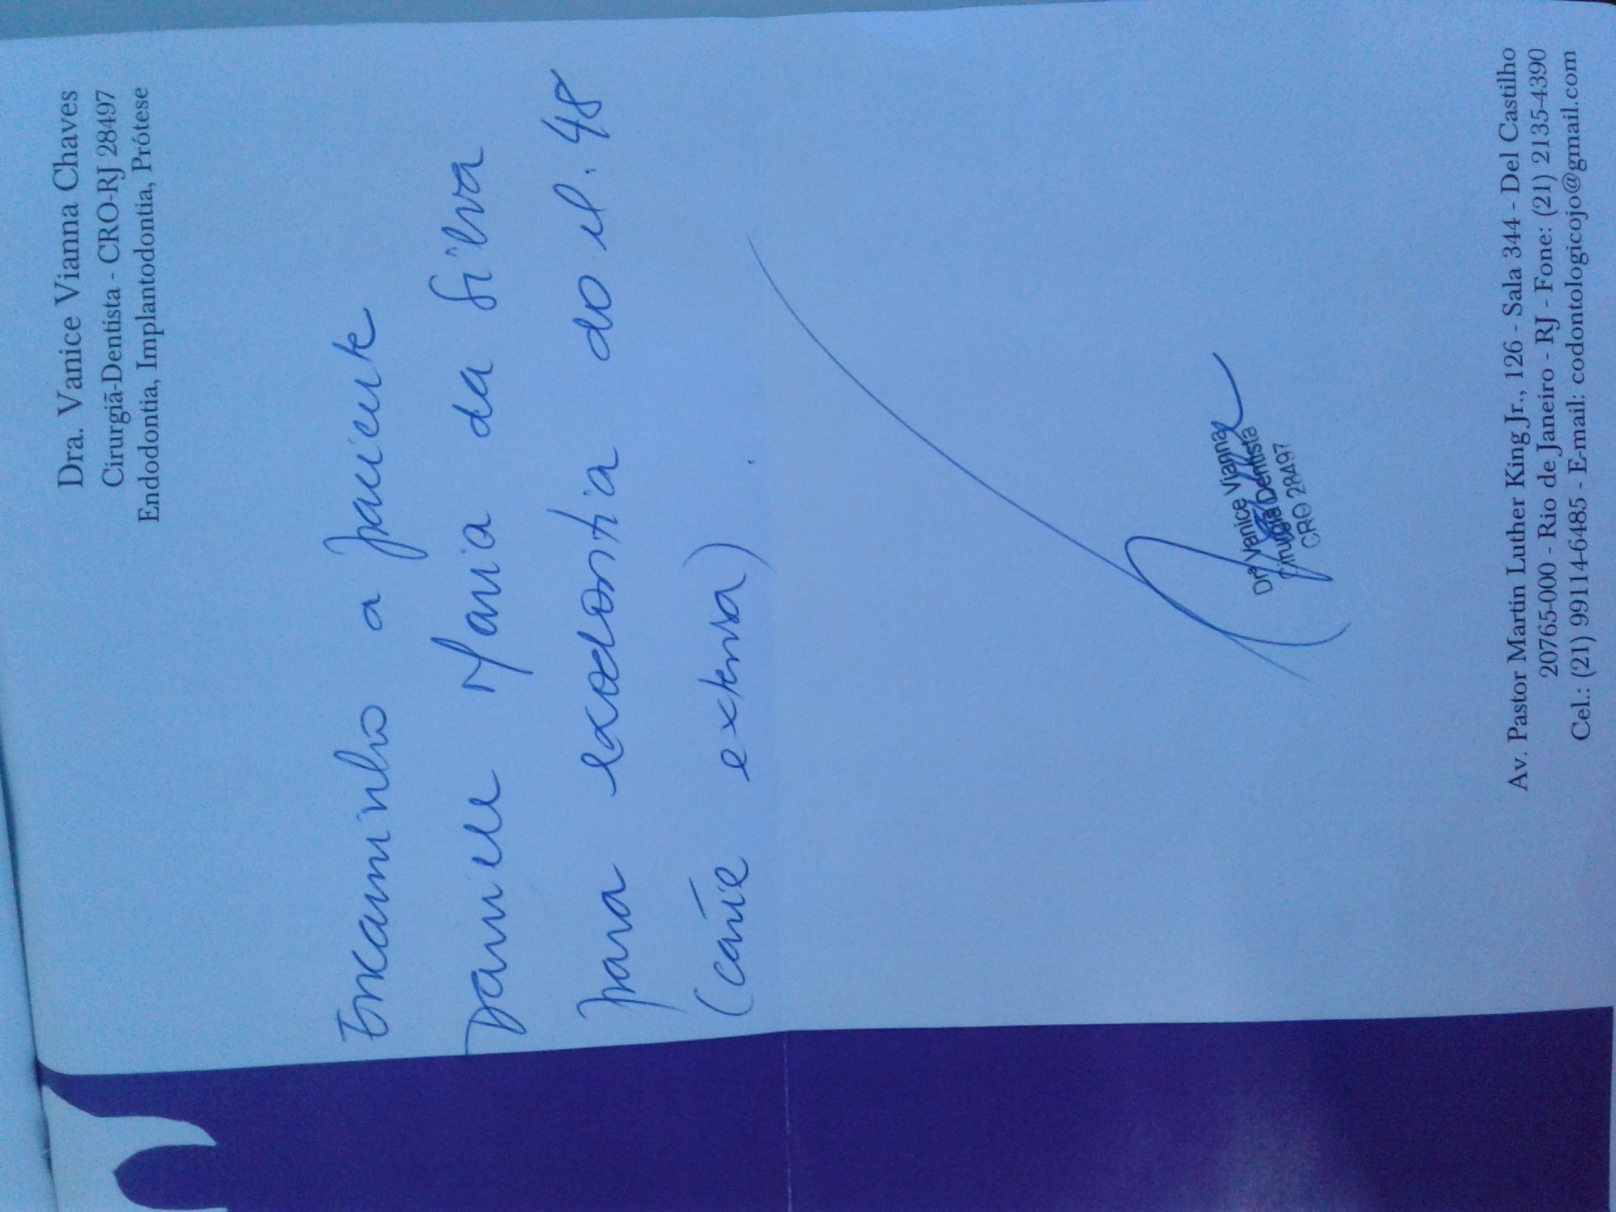 Dra. Vanice Vianna Chaves
Cirurgiã-Dentista - CRO-RJ 28497
Endodontia, Implantodontia, Prótese
Encaminho a paciente
Daniele Maria da Silva
para exodontia do el. 48
(cárie extensa).
Drª Vanice Vianna
Cirurgiã Dentista
CRO 28497
Av. Pastor Martin Luther King Jr., 126 - Sala 344 - Del Castilho
20765-000 - Rio de Janeiro - RJ - Fone: (21) 2135-4390
Cel.: (21) 99114-6485 - E-mail: codontologicojo@gmail.com